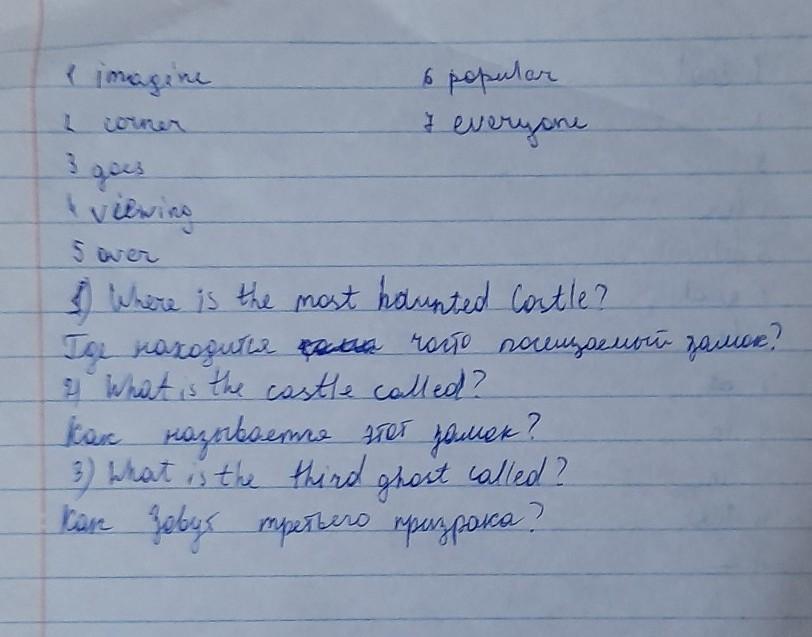 1 imagine
2 corner
3 goes
4 viewing
5 over
6 popular
7 everyone
1) Where is the most haunted Castle?
Где находится часто посещаемый замок?
2) What is the castle called?
Как называется этот замок?
3) What is the third ghost called?
Как зовут третьего призрака?